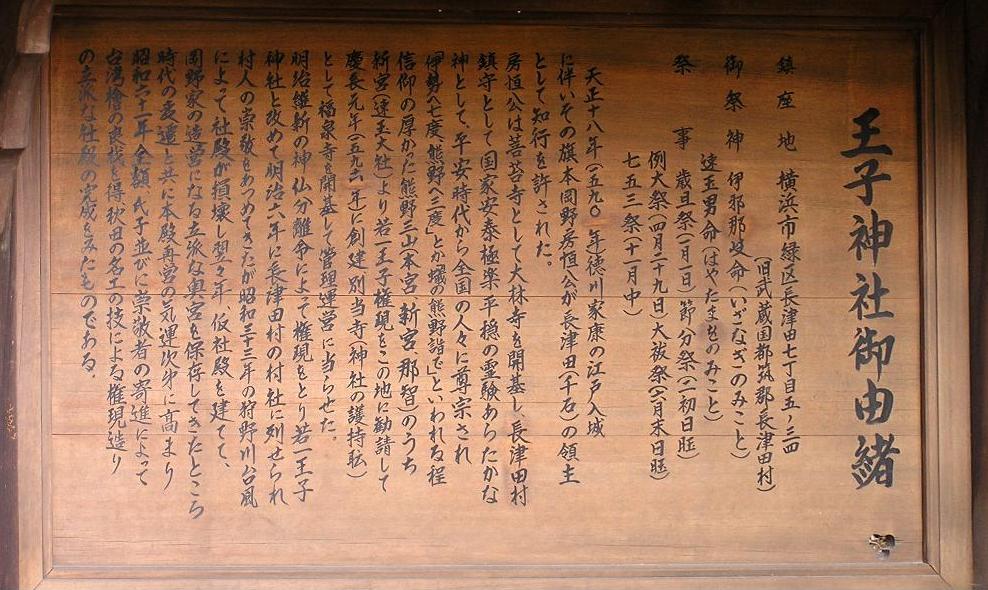 王子神社御由緒
鎮座地 横浜市緑区長津田七丁目五ノ三四
(旧武蔵国都筑郡長津田村)
御祭神 伊耶那岐命(いざなぎのみこと)
速玉男命(はやたまをのみこと)
祭事 歳旦祭(一月一日)節分祭(二初日旺)
例大祭(四月二十九日)大祓祭(六月末日旺)
七五三祭(十一月中)
天正十八年(一五九〇)年徳川家康の江戸入城
に伴いその旗本岡野房恒公が長津田(千石)の領主
として知行を許された。
房恒公は菩苔寺として大林寺を開基し、長津田村
鎮守として国家安泰極楽平穏の霊験あらたかな
神として、平安時代から全国の人々に尊宗され
伊勢へ七度熊野へ三度」とか蟻の熊野詣で」といわれる程
信仰の厚かった熊野三山(本宮、新宮、那智)のうち
新宮(速玉大社)より若一王子権現をこの地に勧請して
慶長元年(一五九六年)に創建別当寺(神社の護持転)
として福泉寺を開基して管理運営に当らせた。
明治維新の神仏分離命によって権現をとり若一王子
神社と改めて明治六年に長津田村の村社に列せられ
村人の崇敬をあつめてきたが昭和三十三年の狩野川台風
によって社殿が損壊し翌々年、仮社殿を建てて、
岡野家の造営になる立派な奥宮を保存してきたところ
時代の変遷と共に本殿再営の気運次第に高まり
昭和六十一年全額、氏子並びに崇敬者の寄進によって
台湾檜の良材を得秋田の名工の技による権現造り
の立派な社殿の完成をみたものである。